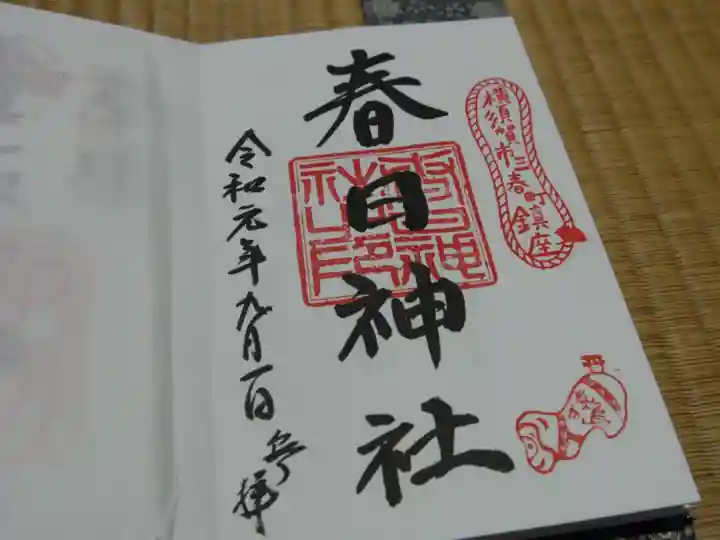 横須賀市三春町
鎮座
春日神社
春日神社之印
令和元年九月一日 奉拝